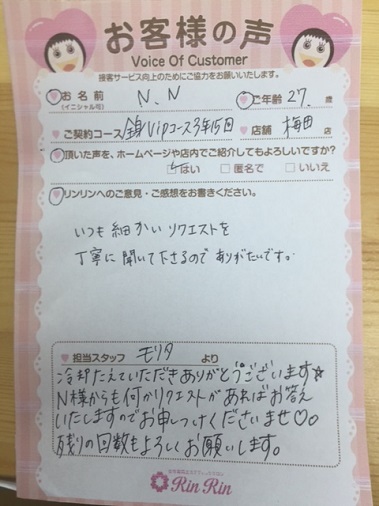 お客様の声
Voice Of Customer
接客サービス向上のためにご協力をお願いいたします。
お名前 N.N ご年齢 27. 歳
(イニシャル可)
ご契約コース 全身Vipコース3年15回 店舗 梅田 店
頂いた声を、ホームページや店内でご紹介してもよろしいですか?
☑はい □匿名で □いいえ
リンリンへのご意見・ご感想をお書きください。
いつも細かいリクエストを
丁寧に聞いて下さるのでありがたいです。
担当スタッフ モリタ より
冷却たえていただきありがとうございます☆
N様からも何かリクエストがあればお答え
いたしますのでお申しつけくださいませ♡。
残りの回数もよろしくお願いします。
Rin Rin